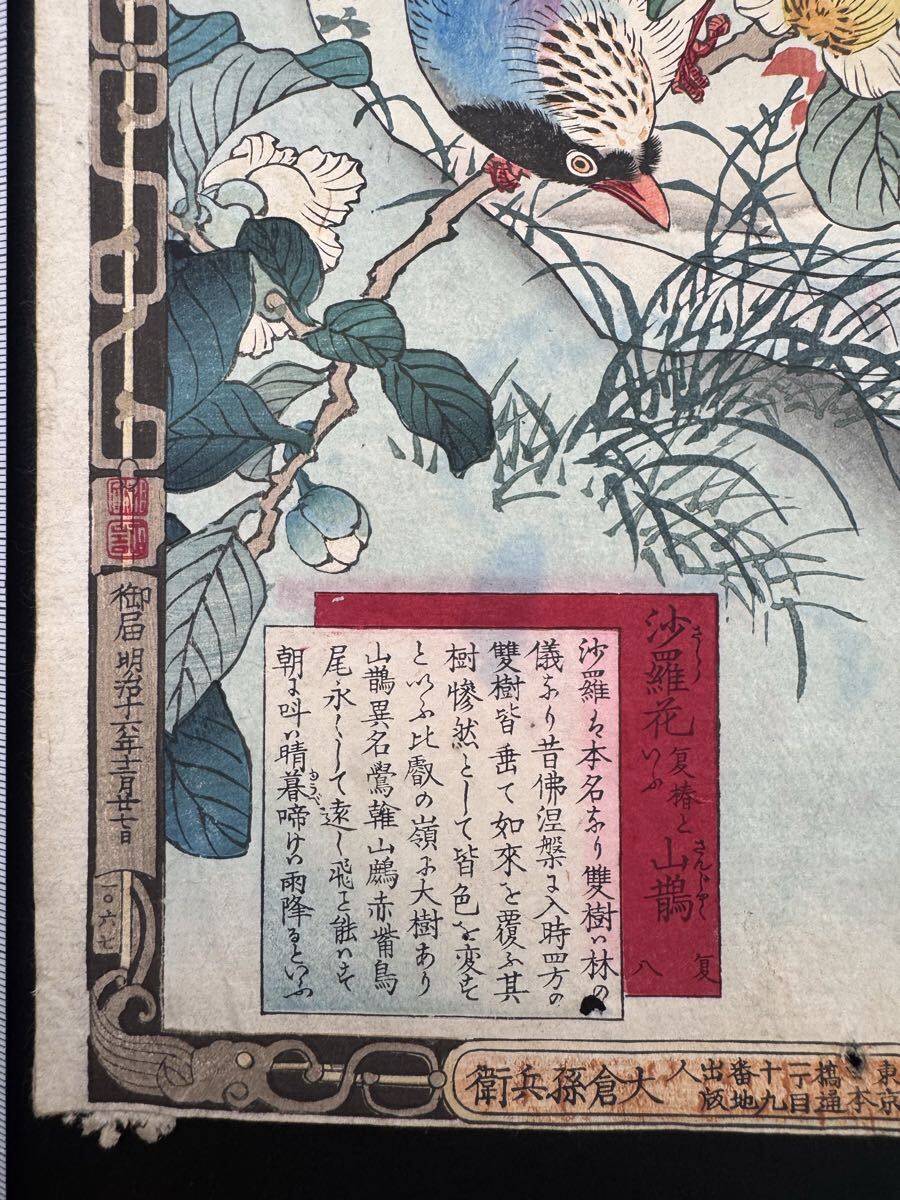 沙羅花 さらいふ 复椿と 山鵲 さんじやく 复 八
沙羅は本名なり雙樹ハ林の
儀なり昔佛涅槃に入時四方の
雙樹皆垂て如來を覆ふ其
樹惨然として皆色を変す
といふ比叡の嶺に大樹あり
山鵲異名鸒雗山鷓赤觜鳥
尾永くして遠く飛と能ハす
朝に呌ハ晴暮啼けハ雨降るといふ
御届明治十六年十二月廿七日
一〇六七
東京
日本
橋通
一丁目
十九
番地
出版
人
大倉孫兵衛